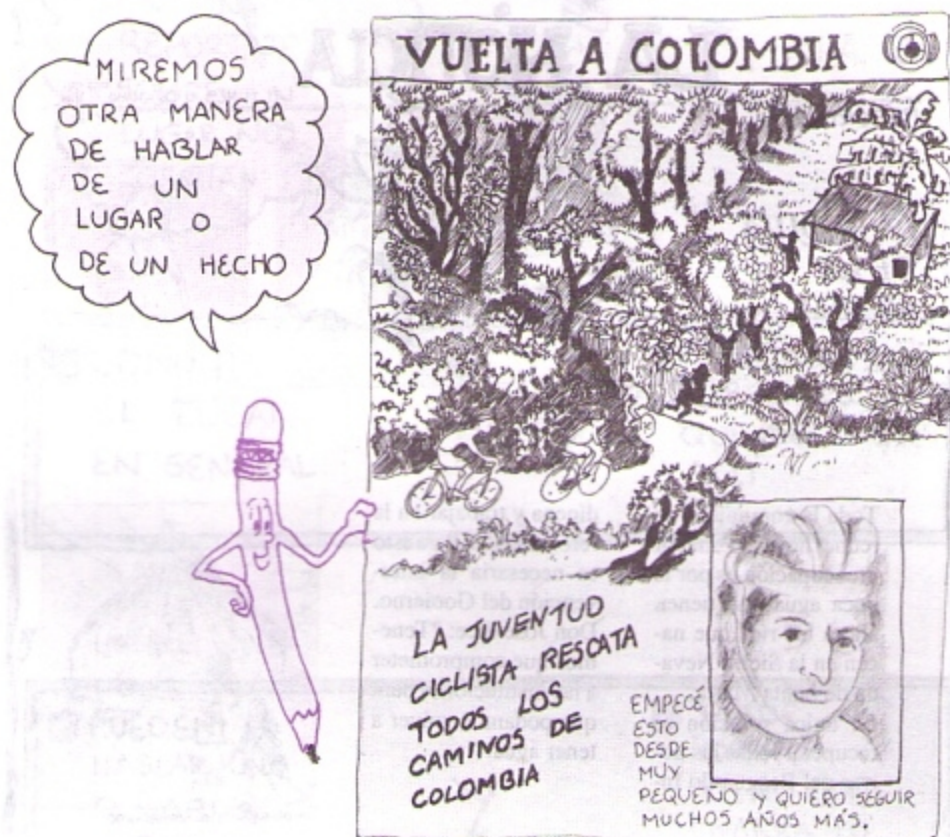 MIREMOS
OTRA MANERA
DE HABLAR
DE UN
LUGAR O
DE UN HECHO
VUELTA A COLOMBIA
LA JUVENTUD
CICLISTA RESCATA
TODOS LOS
CAMINOS DE
COLOMBIA
EMPECÉ
ESTO
DESDE
MUY
PEQUEÑO Y QUIERO SEGUIR
MUCHOS AÑOS MÁS.